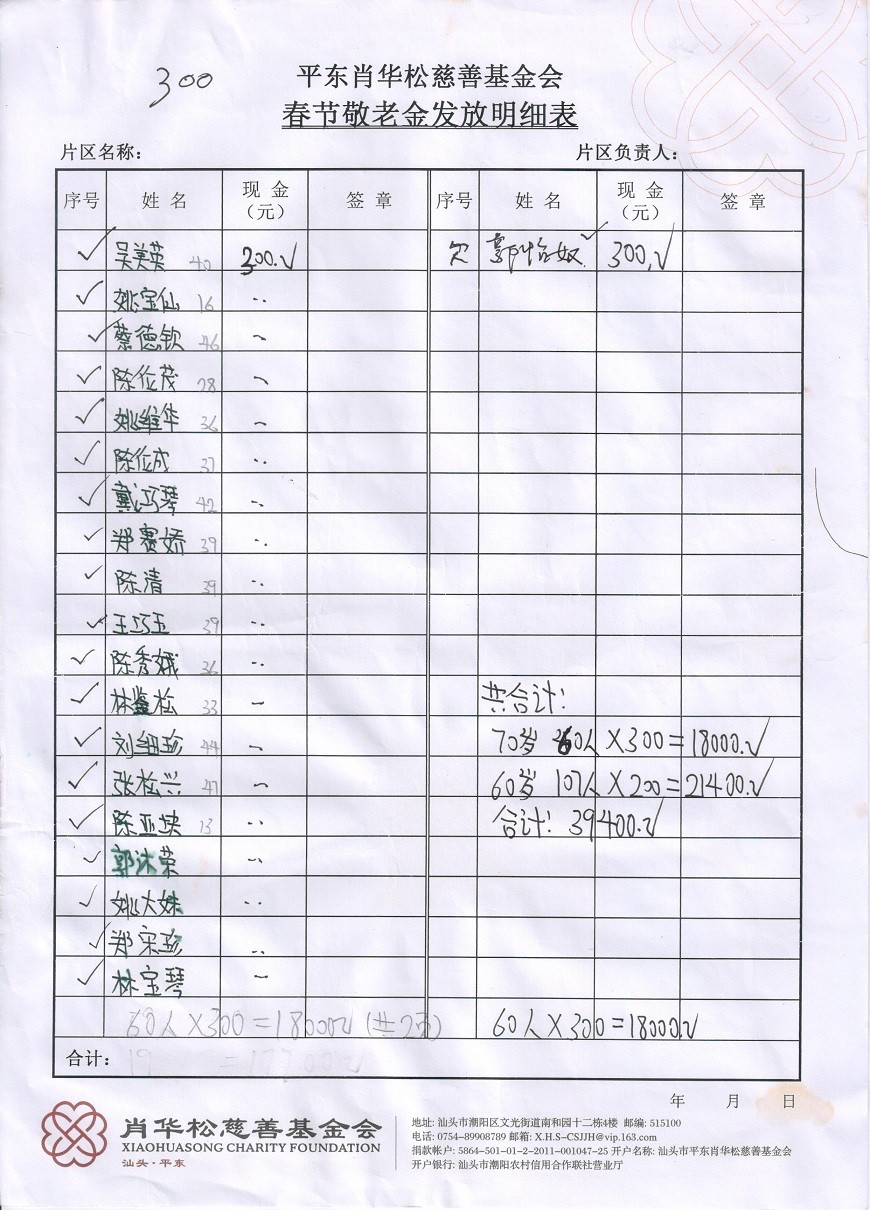 300
平东肖华松慈善基金会
春节敬老金发放明细表
片区名称： 片区负责人：
序号 姓名 现金（元） 签章 序号 姓名 现金（元） 签章
✓ 吴美英 40 300.✓ 欠 郭怡奴 ✓ 300.✓
✓ 姚宝仙 16 〃
✓ 蔡德钦 46 〃
✓ 陈位茂 28 〃
✓ 姚维华 36 〃
✓ 陈位成 37 〃
✓ 戴巧琴 42 〃
✓ 郑赛娇 39 〃
✓ 陈清 39 〃
✓ 王巧玉 39 〃
✓ 陈秀娥 36 〃
✓ 林松 33 〃 共合计：
✓ 刘细珍 44 〃 70岁 60人×300=18000.✓
✓ 张松兴 47 〃 60岁 107人×200=21400.✓
✓ 陈亚 13 〃 合计：39400.✓
✓ 郭沐荣 〃
✓ 姚大妹 〃
✓ 郑宋珍 〃
✓ 林宝琴 〃
60人×300=18000✓（共2页） 60人×300=18000.✓
合计： 19
年 月 日
肖华松慈善基金会
XIAOHUASONG CHARITY FOUNDATION
汕头·平东
地址: 汕头市潮阳区文光街道南和园十二栋4楼 邮编: 515100
电话: 0754-89908789 邮箱: X.H.S-CSJJH@vip.163.com
捐款帐户: 5864-501-01-2-2011-001047-25 开户名称: 汕头市平东肖华松慈善基金会
开户银行: 汕头市潮阳农村信用合作联社营业厅